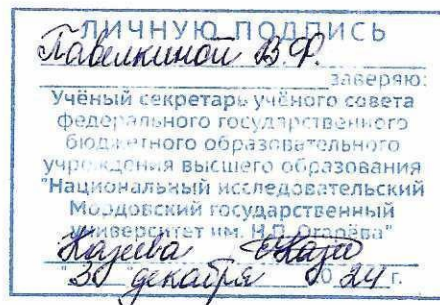 ЛИЧНУЮ ПОДПИСЬ
Павелкиной В.Ф.
заверяю:
Учёный секретарь учёного совета
федерального государственного
бюджетного образовательного
учреждения высшего образования
"Национальный исследовательский
Мордовский государственный
университет им. Н.П. Огарёва"
"3 декабря 2024 г.